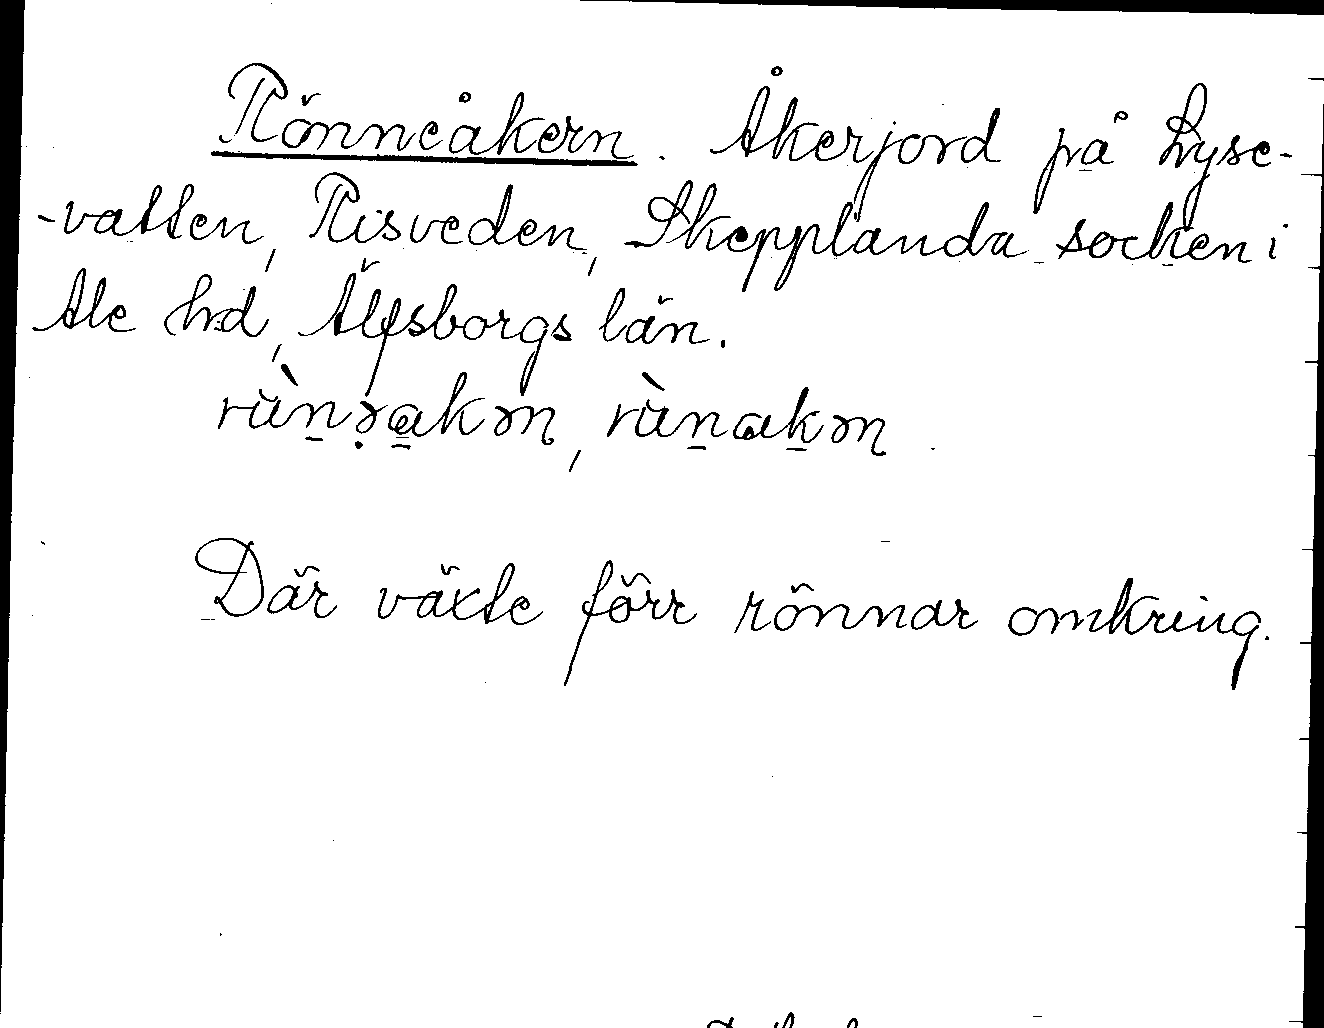 Rönneåkern. Åkerjord på Lyse-
-vatten, Risveden, Skepplanda socken i
Ale hd, Älfsborgs län.
Där växte förr rönnar omkring.